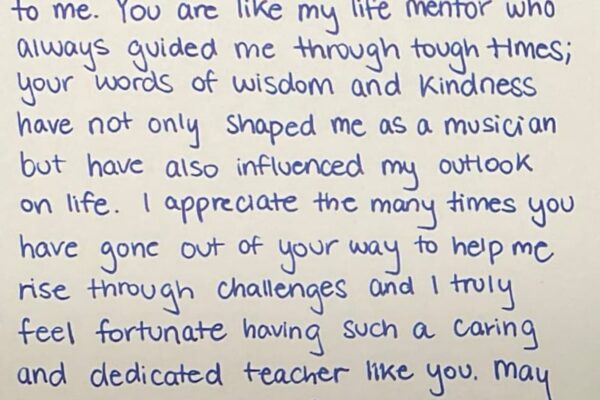 to me. You are like my life mentor who
always guided me through tough times;
your words of wisdom and kindness
have not only shaped me as a musician
but have also influenced my outlook
on life. I appreciate the many times you
have gone out of your way to help me
rise through challenges and I truly
feel fortunate having such a caring
and dedicated teacher like you. May